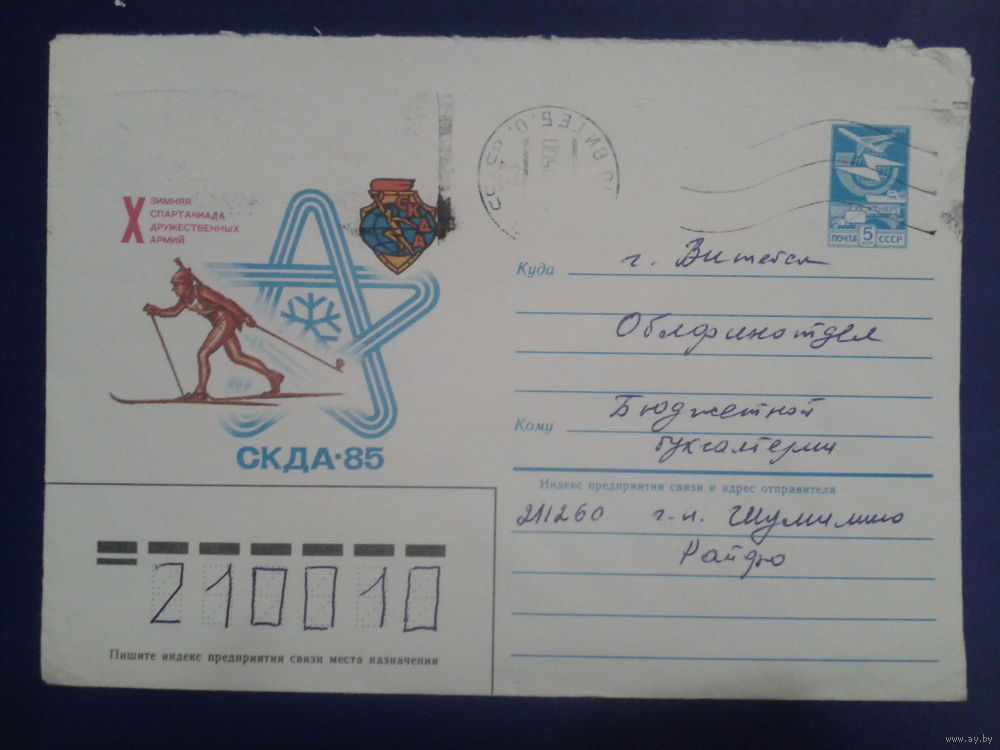 X
ЗИМНЯЯ
СПАРТАКИАДА
ДРУЖЕСТВЕННЫХ
АРМИЙ
СКДА
СКДА·85
ПОЧТА 5 СССР
Куда г. Витебск
Облфинотдел
Кому Бюджетной
бухгалтерии
Индекс предприятия связи и адрес отправителя
211260 г.п. Шумилино
Райфо
210010
Пишите индекс предприятия связи места назначения
www.ay.by